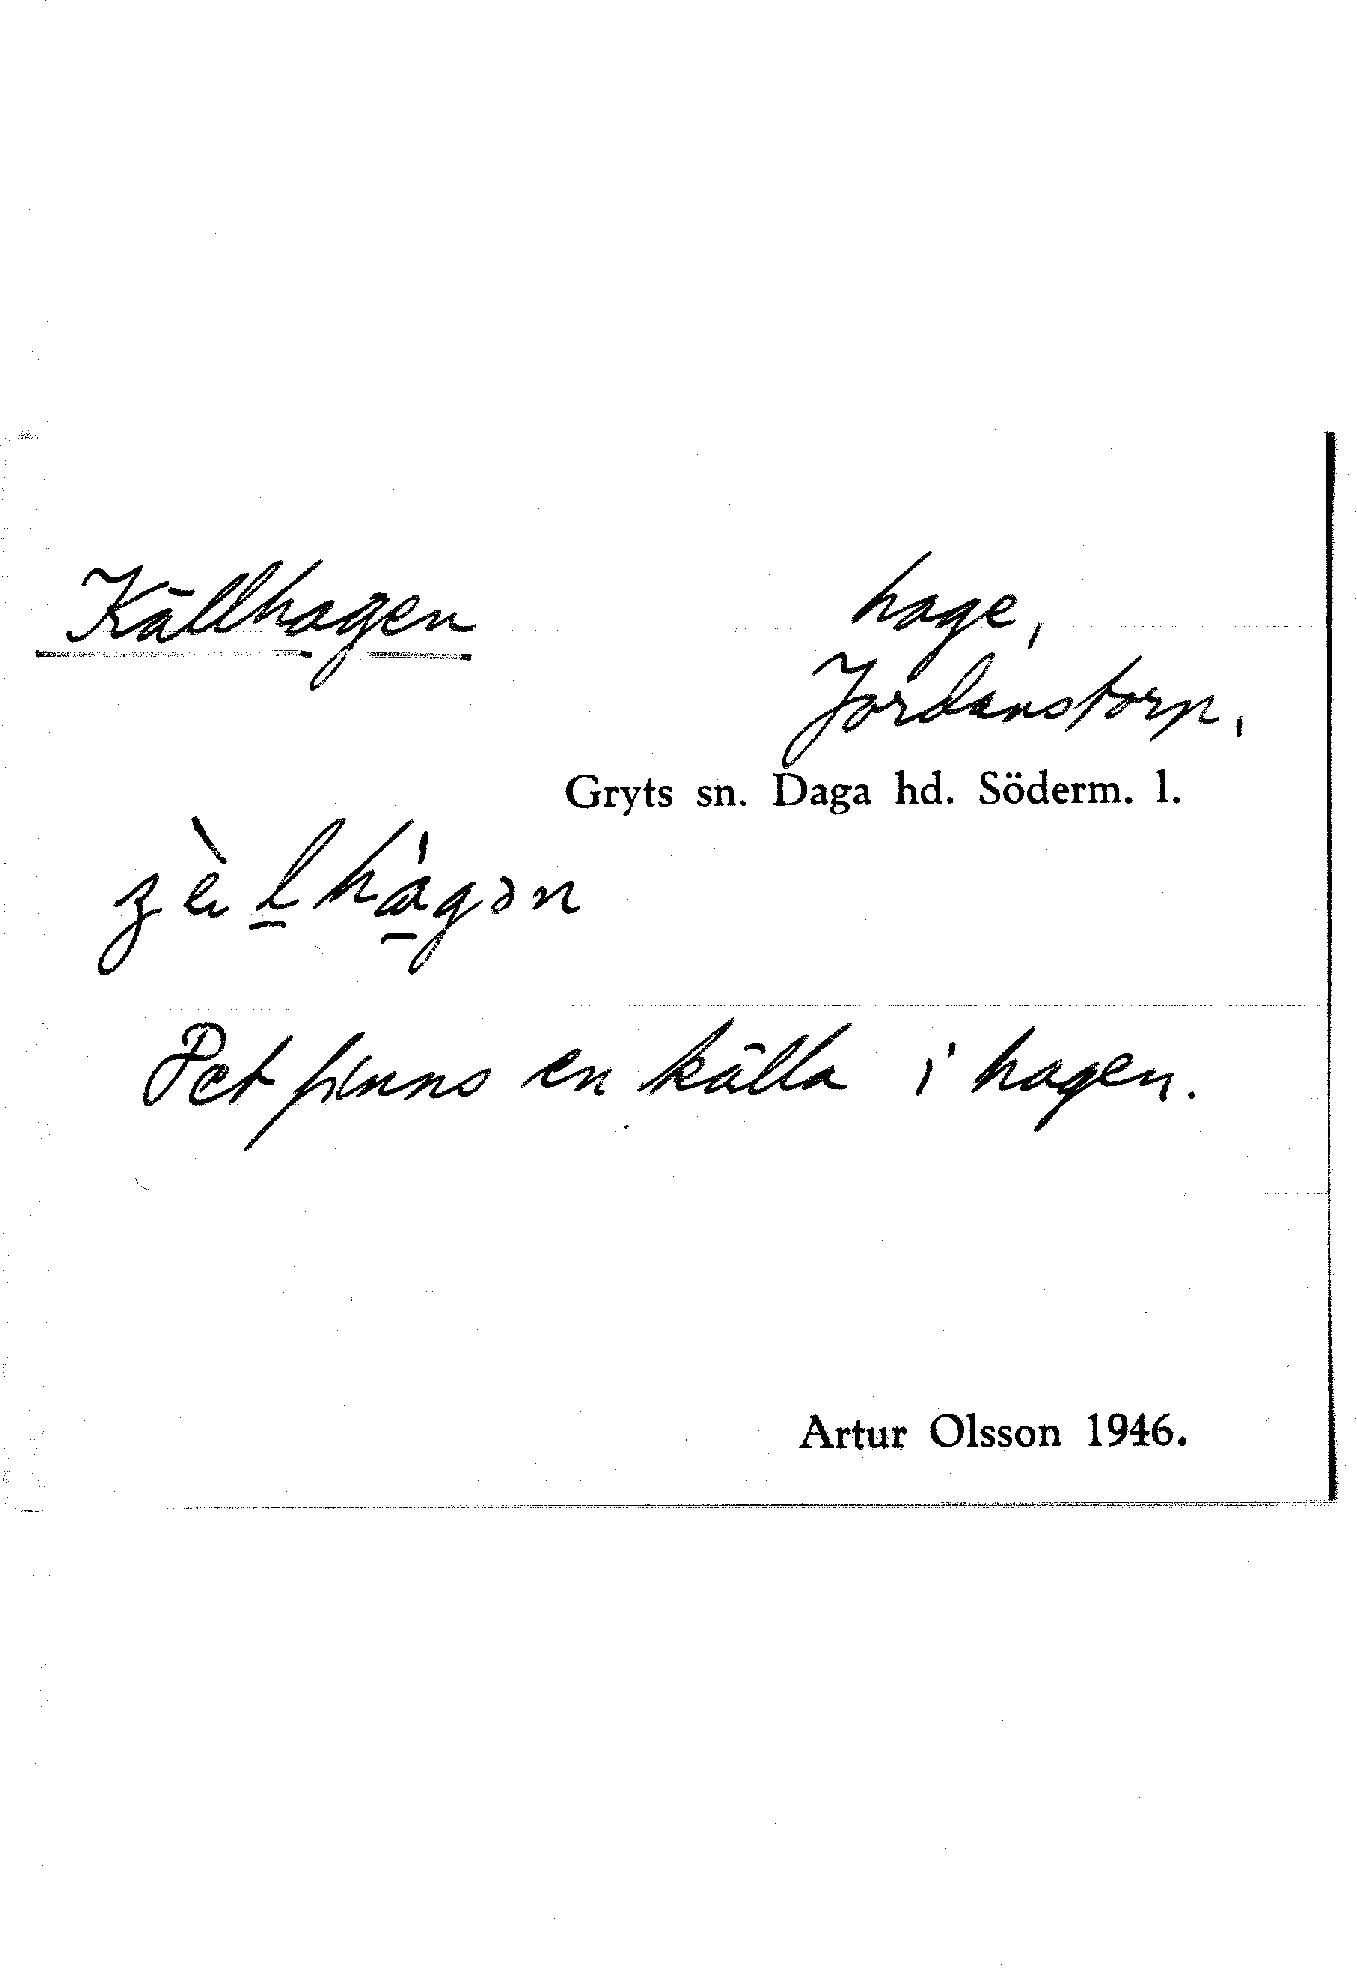 Källhagen hage,
Jordanstorp,
Gryts sn. Daga hd. Söderm. l.
Det finns en källa i hagen.
Artur Olsson 1946.